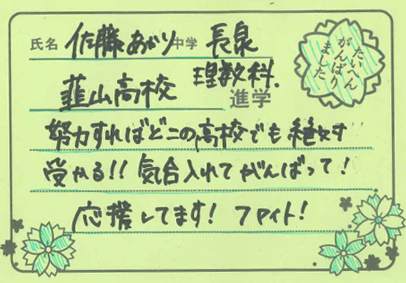 氏名 佐藤 あかり 中学 長泉
韮山高校 理数科 進学
たいへん
がんばり
ました
努力すればどこの高校でも絶対
受かる!! 気合入れてがんばって!
応援してます! ファイト!